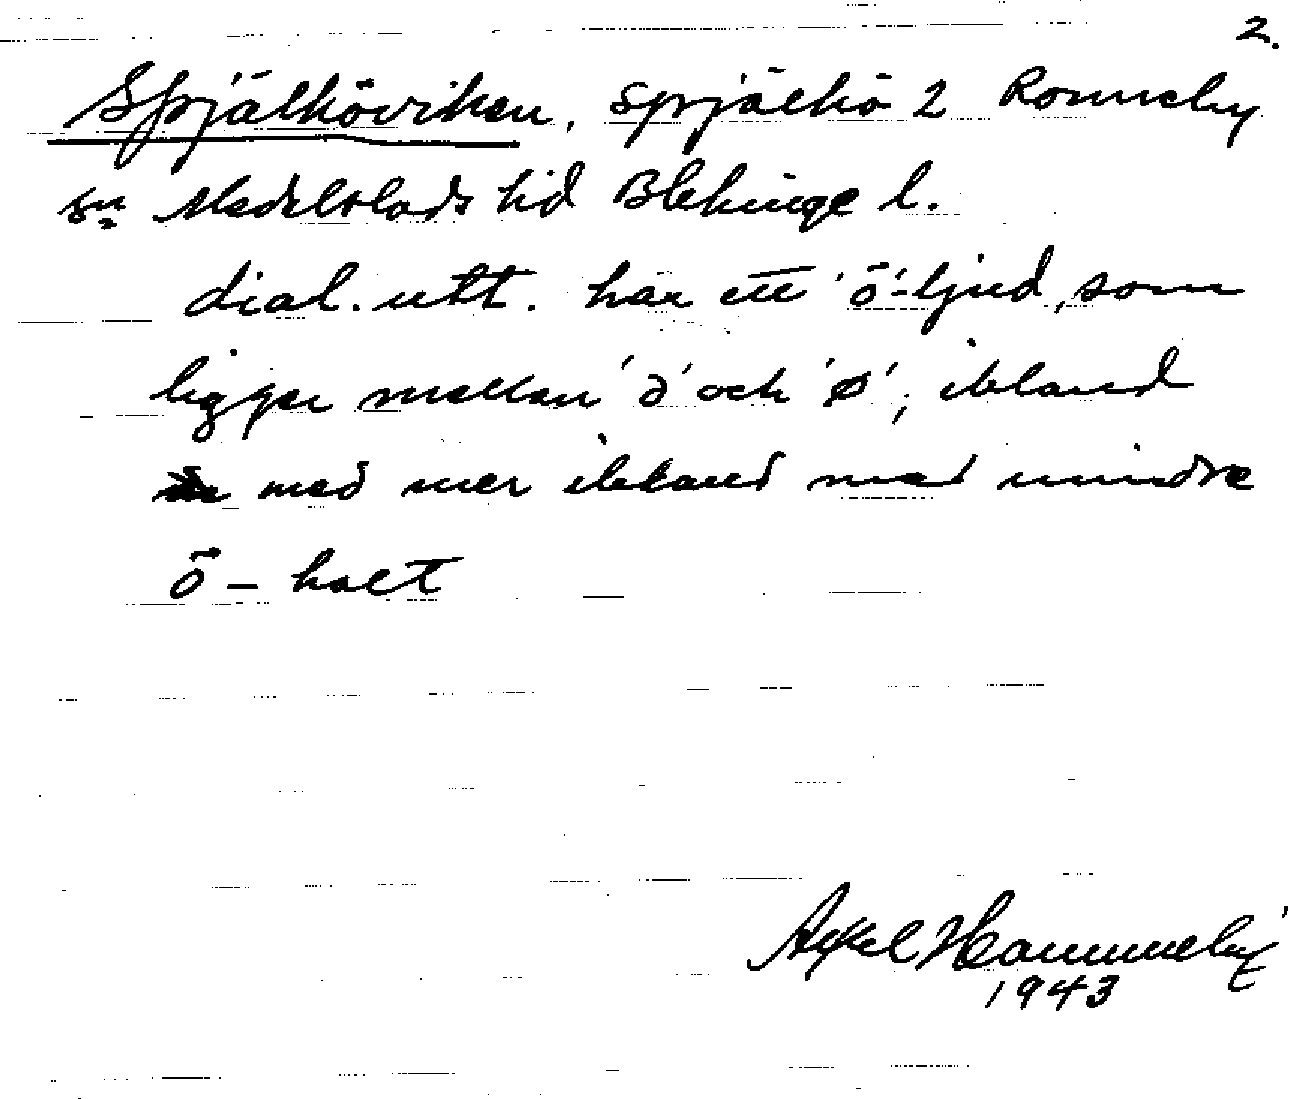 2.
Spjälköviken, Spjälkö 2 Ronneby
sn Medelstads hd Blekinge l.
dial. utt. har ett 'ö'-ljud, som
ligger mellan 'å' och 'ø'; ibland
med mer ibland med mindre
ö - halt
Axel Hammneby
1943